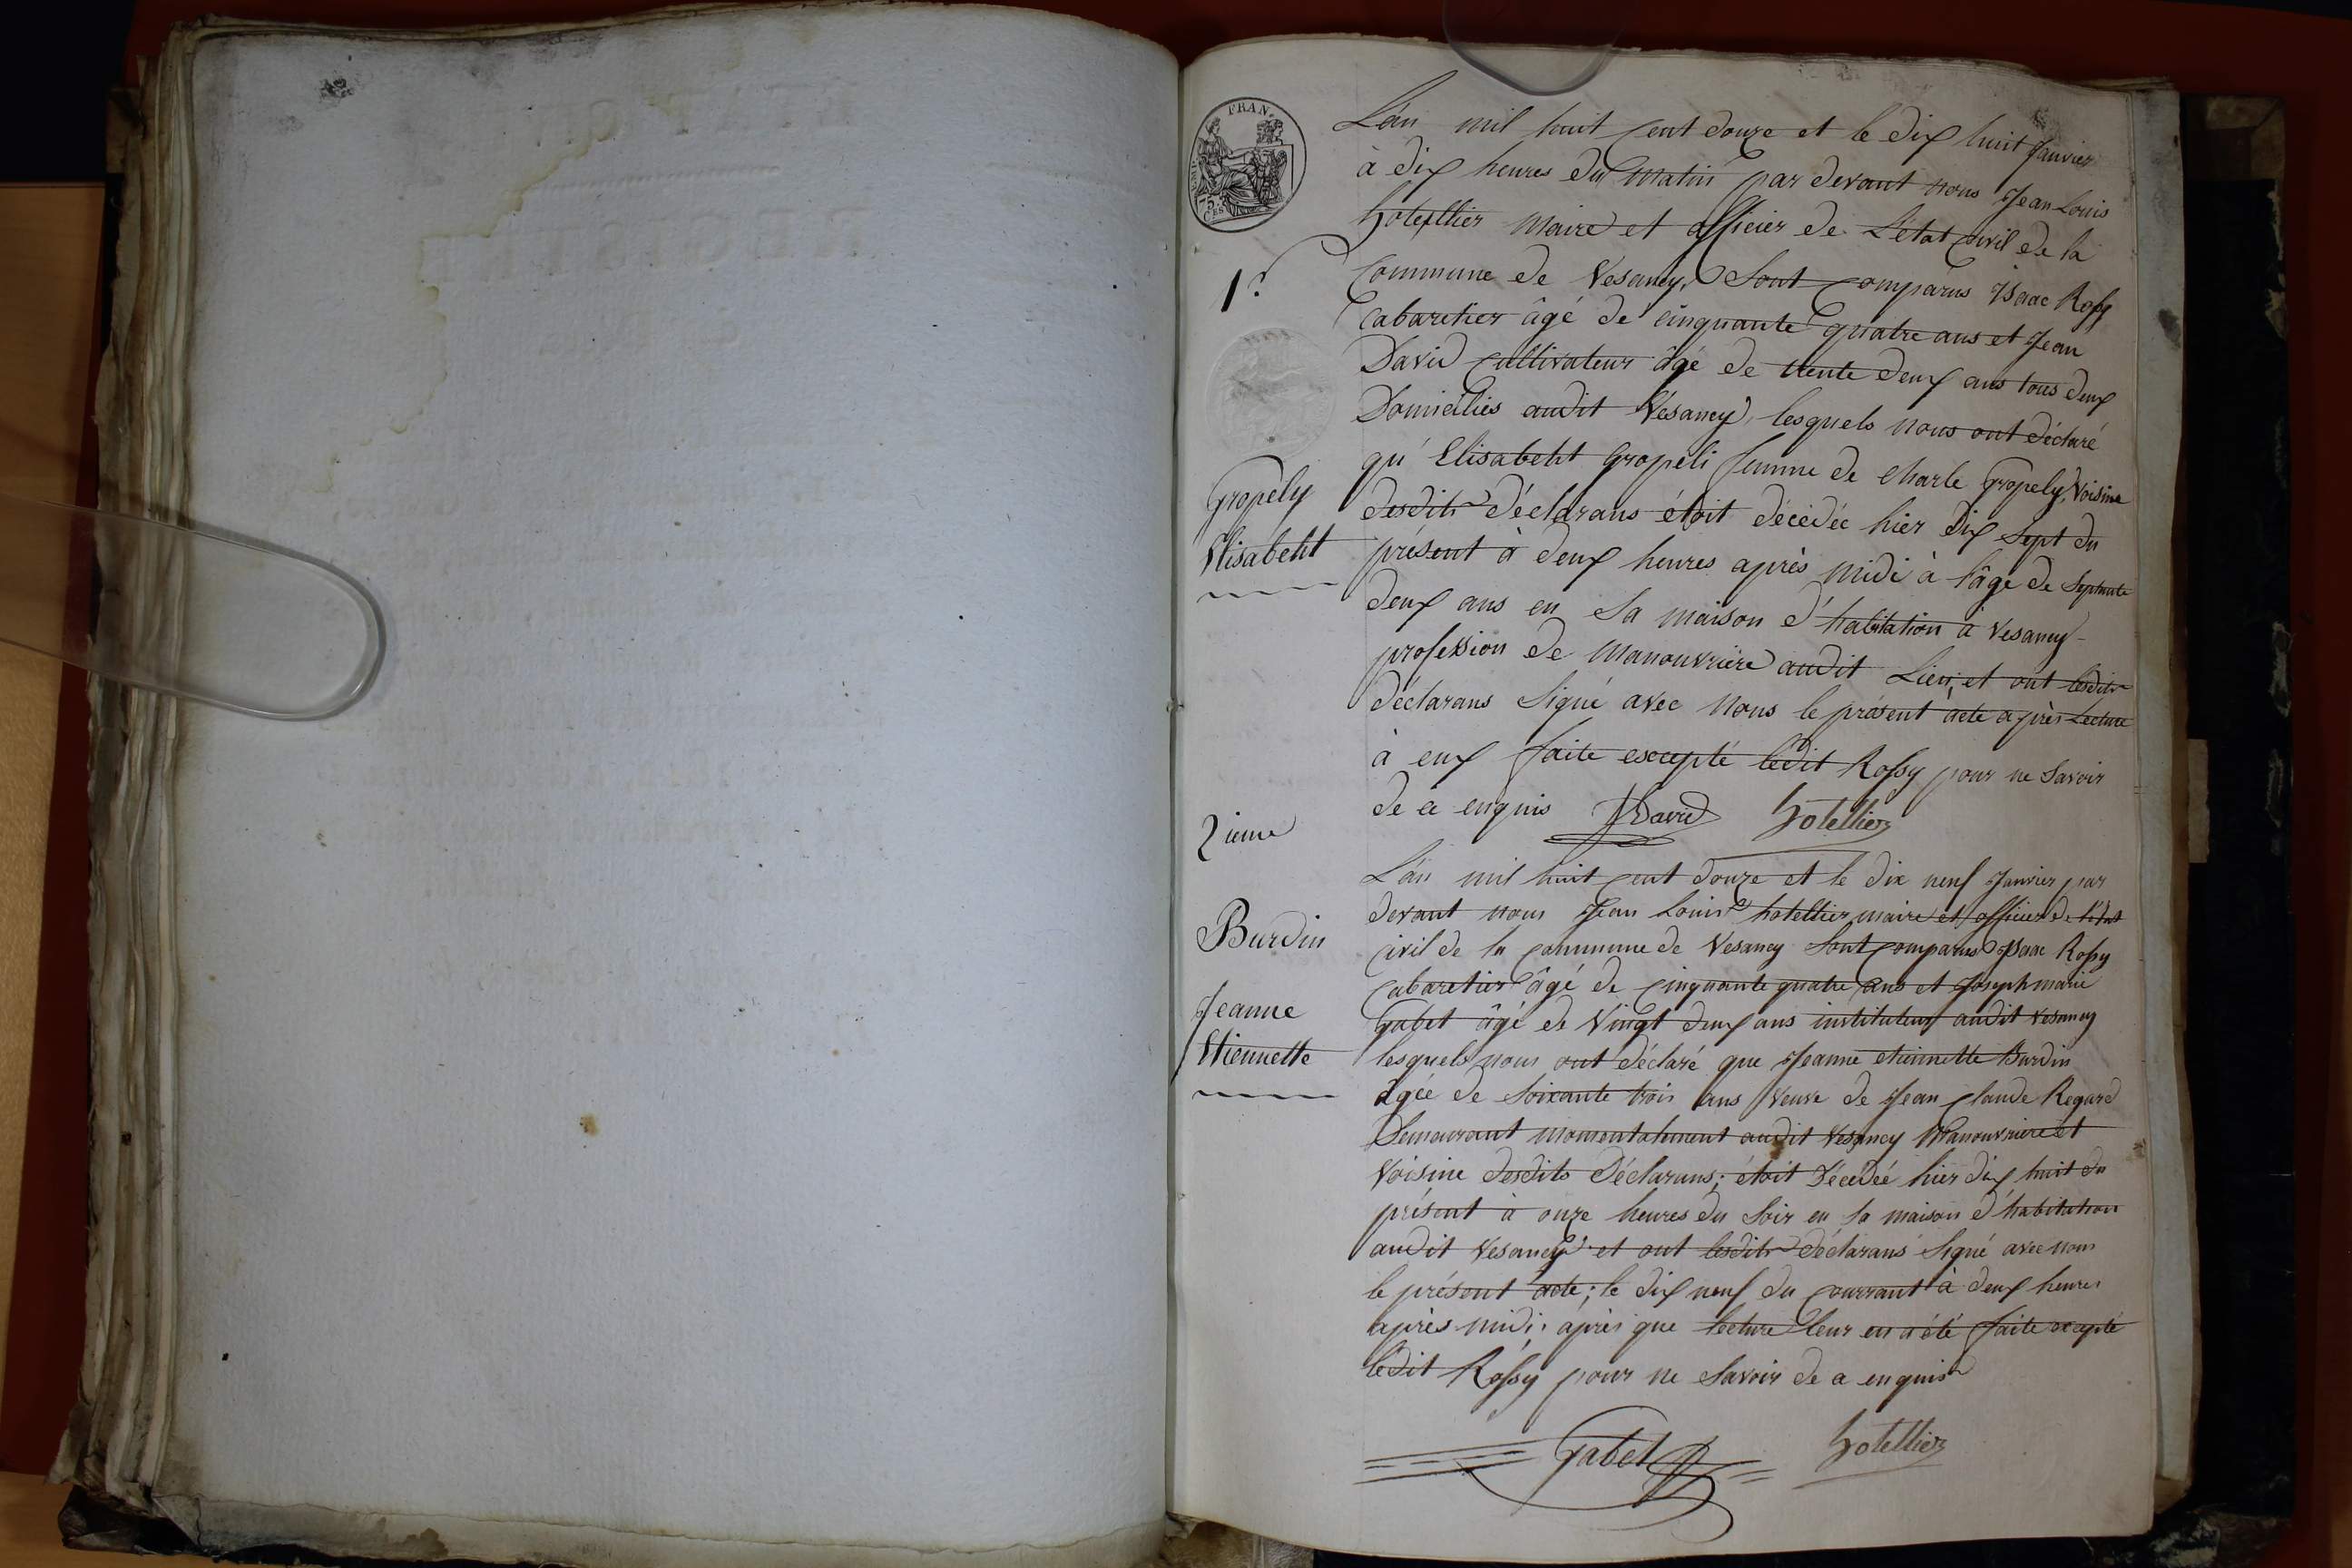 FRAN
75
CES
L'án mil huit cent douze et le dix huit Janvier
à dix heures du matin par devant nous Jean Louis
hotellier Maire et officier de L'état civil de la
1.r
Commune de Vesancy, Sont comparus Isaac Rossy
Cabaretier âgé de cinquante quatre ans et Jean
David cultivateur âgé de trente deux ans tous deux
Domiciliés audit Vesancy, lesquels nous ont déclaré
Gropely
Elisabeht
qu'Elisabeht Gropeli femme de Charle Gropely, Voisine
desdits déclarans étoit décédée hier Dix Sept du
présent à deux heures après midi à l'âge de Septante
deux ans en Sa maison d'habitation à Vesancy
profession de Manouvrière audit Lieu, et ont lesdits
déclarans Signé avec Nous le présent acte après Lecture
à eux faite excepté ledit Rossy pour ne Savoir
de ce enquis JDavid hotellier
2ieme
Burdin
Jeanne
Etiennette
L'án mil huit cent douze et le dix neuf Janvier par
devant nous Jean Louis hotellier maire et officier de l'état
civil de la commune de Vesancy Sont comparus Isaac Rossy
Cabaretier âgé de Cinquante quatre ans et Joseph marie
Gabet âgé de Vingt deux ans instituteur audit Vesancy
lesquels nous ont déclaré que Jeanne etiennette Burdin
âgée de Soixante trois ans Veuve de Jean Claude Regard
Demeurant momentatement audit Vesancy Manouvriere et
Voisine desdits Déclarans; étoit Décédée hier dix huit du
présent à onze heures du Soir en sa maison d'habitation
audit Vesancy et ont lesdits déclarans Signé avec nous
le présent acte; le dix neuf du courrant à deux heures
après midi, après que lecture leur en a été faite excepté
ledit Rossy pour ne Savoir de a enquis
Gabet hotellier